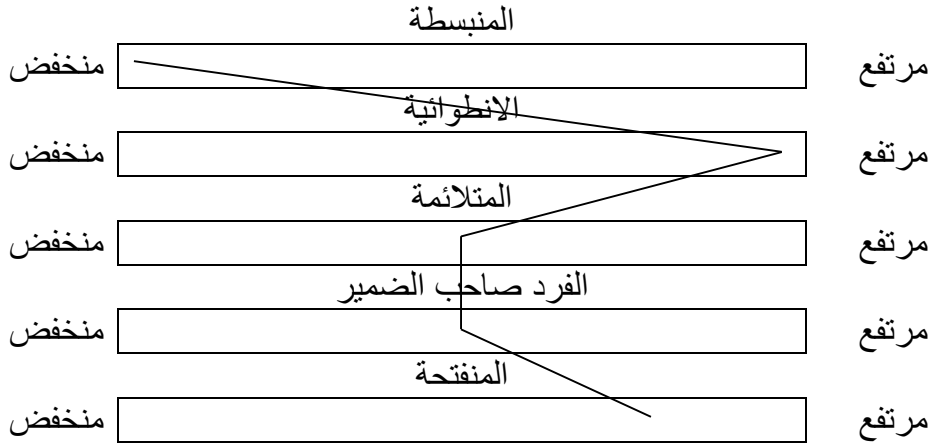 المنبسطة
مرتفع منخفض
الانطوائية
مرتفع منخفض
المتلائمة
مرتفع منخفض
الفرد صاحب الضمير
مرتفع منخفض
المنفتحة
مرتفع منخفض